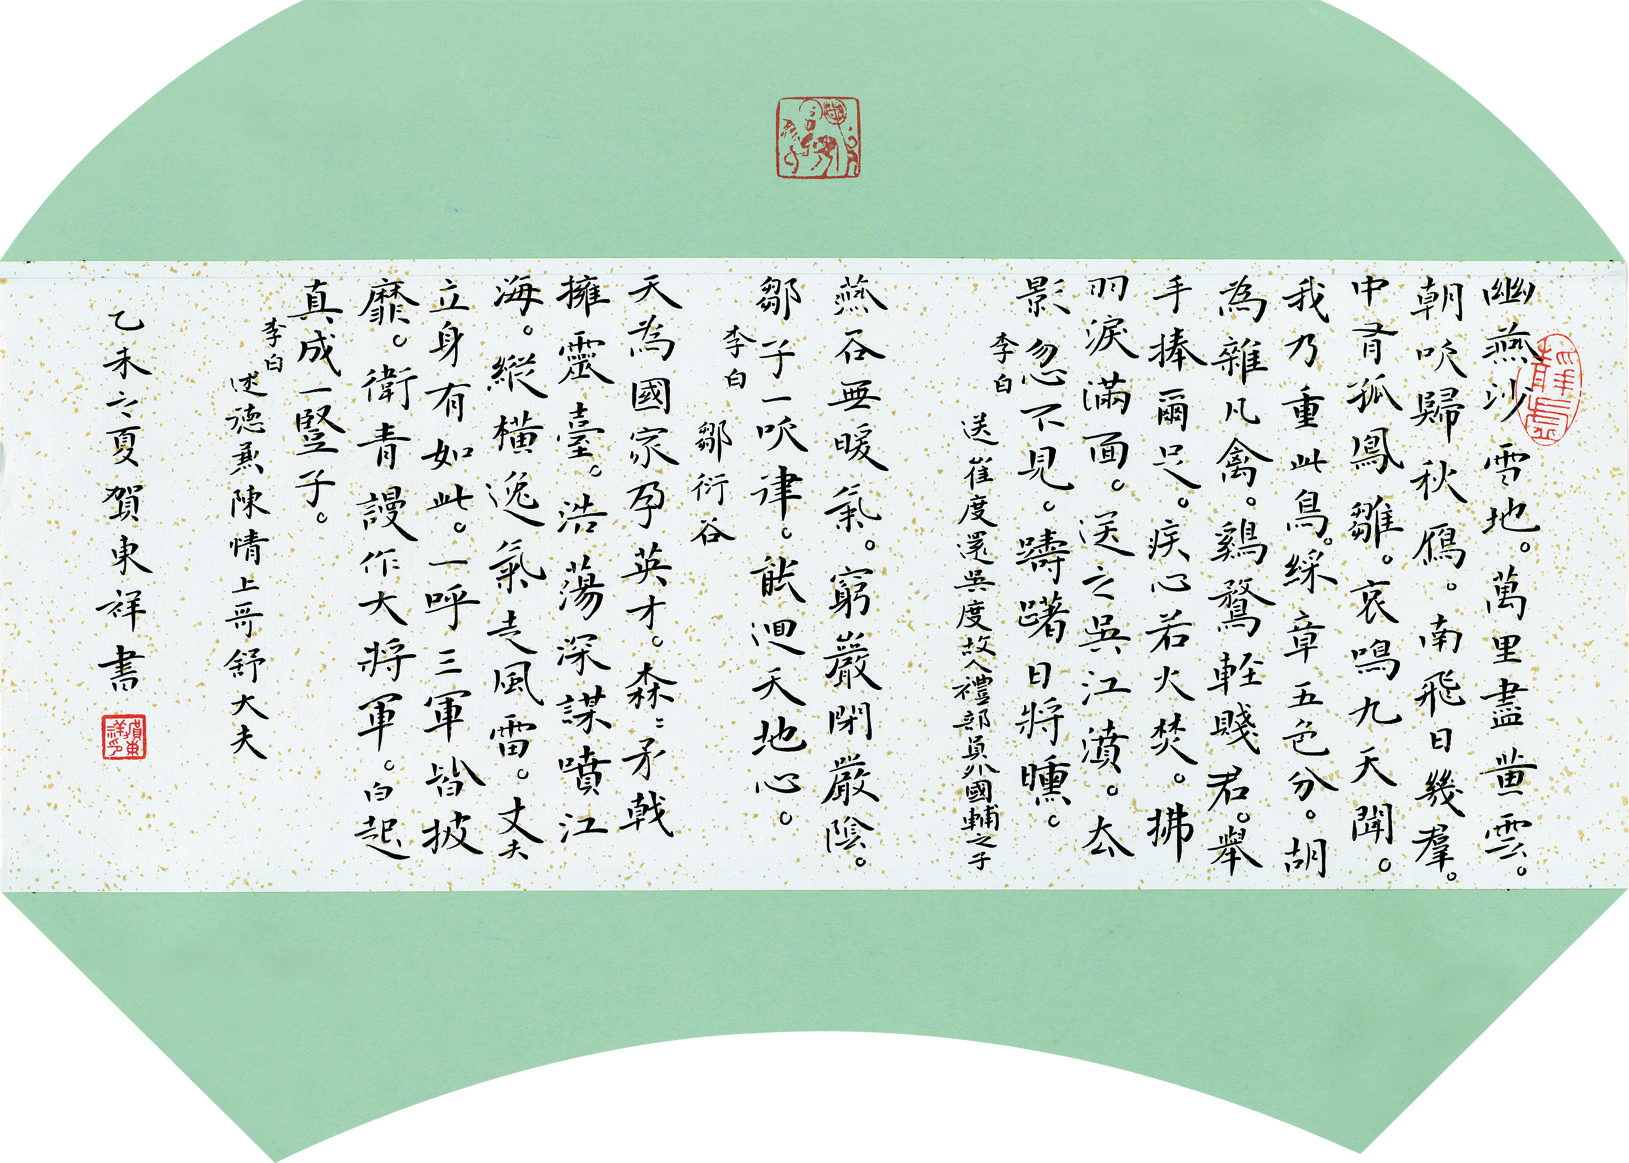 幽燕沙雪地。萬里盡黃雲。
朝吹歸秋雁。南飛日幾羣。
中有孤鳳雛。哀鳴九天聞。
我乃重此鳥。綵章五色分。胡
為雜凡禽。鷄鶩輕賤君。舉
手捧爾足。疾心若火焚。拂
羽淚滿面。送之吳江濆。去
影忽不見。躊躇日將曛。
李白
送崔度還吳度故人禮部員外國輔之子
燕谷無暖氣。窮巖閉嚴陰。
鄒子一吹律。能迴天地心。
李白
鄒衍谷
天為國家孕英才。森〻矛戟
擁靈臺。浩蕩深謀噴江
海。縱橫逸氣走風雷。丈夫
立身有如此。一呼三軍皆披
靡。衛青謾作大將軍。白起
真成一豎子。
李白
述德兼陳情上哥舒大夫
乙未之夏賀東祥書